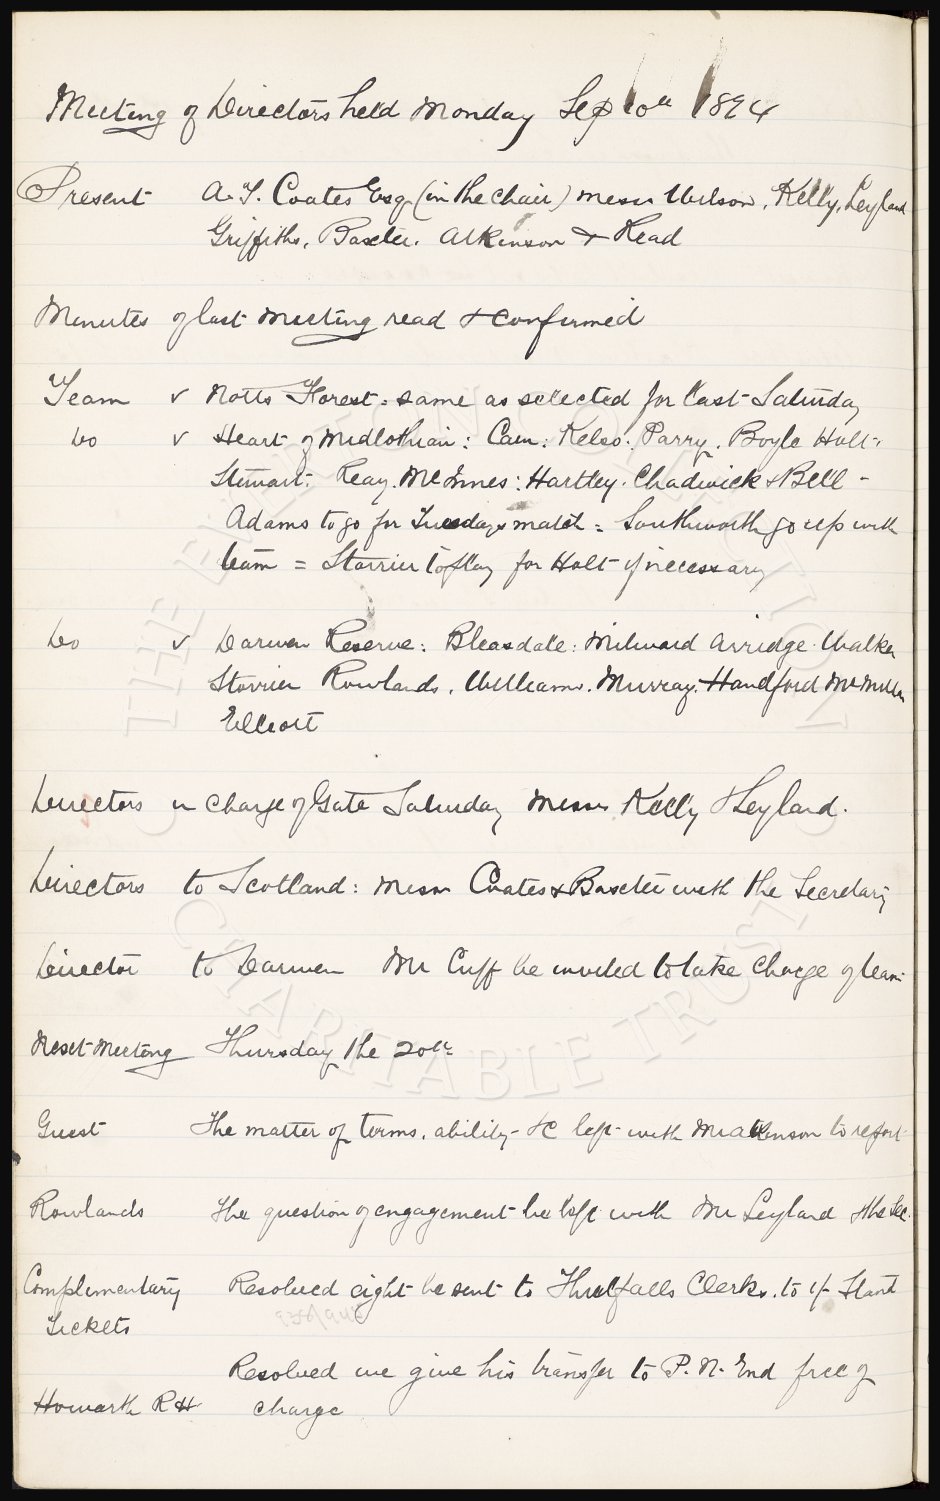 Meeting of Directors held Monday Sep 10th 1894
Present A. T. Coates Esq (in the chair) Messrs Wilson, Kelly, Leyland
Griffiths, Baxter, Atkinson & Read
Minutes of last meeting read & confirmed
Team v Notts Forest = same as selected for last Saturday
Do v Heart of Midlothian: Cain: Kelso. Parry. Boyle Holt.
Stewart. Reay. McInnes: Hartley. Chadwick & Bell -
Adams to go for Tuesdays match = Southworth go up with
team = Storrier to play for Holt if necessary
Do v Darwen Reserve: Bleasdale: Milward Arridge. Walker
Storrier Rowlands, Williams. Murray. Handford McMillan
Elliott
Directors in charge of Gate Saturday Messrs Kelly & Leyland.
Directors to Scotland: Messrs Coates & Baxter with the Secretary
Director to Darwen Mr Cuff be invited to take charge of team
Next Meeting Thursday the 20th
Guest The matter of terms, ability &c left with Mr Atkinson to report
Rowlands The question of engagement be left with Mr Leyland & the Sec.
Complimentary Resolved eight be sent to Threlfalls Clerks. to 1/- Stand
Tickets
Resolved we give his transfer to P. N. End free of
Howarth R H charge
THE EVERTON COLLECTION
CHARITABLE TRUST